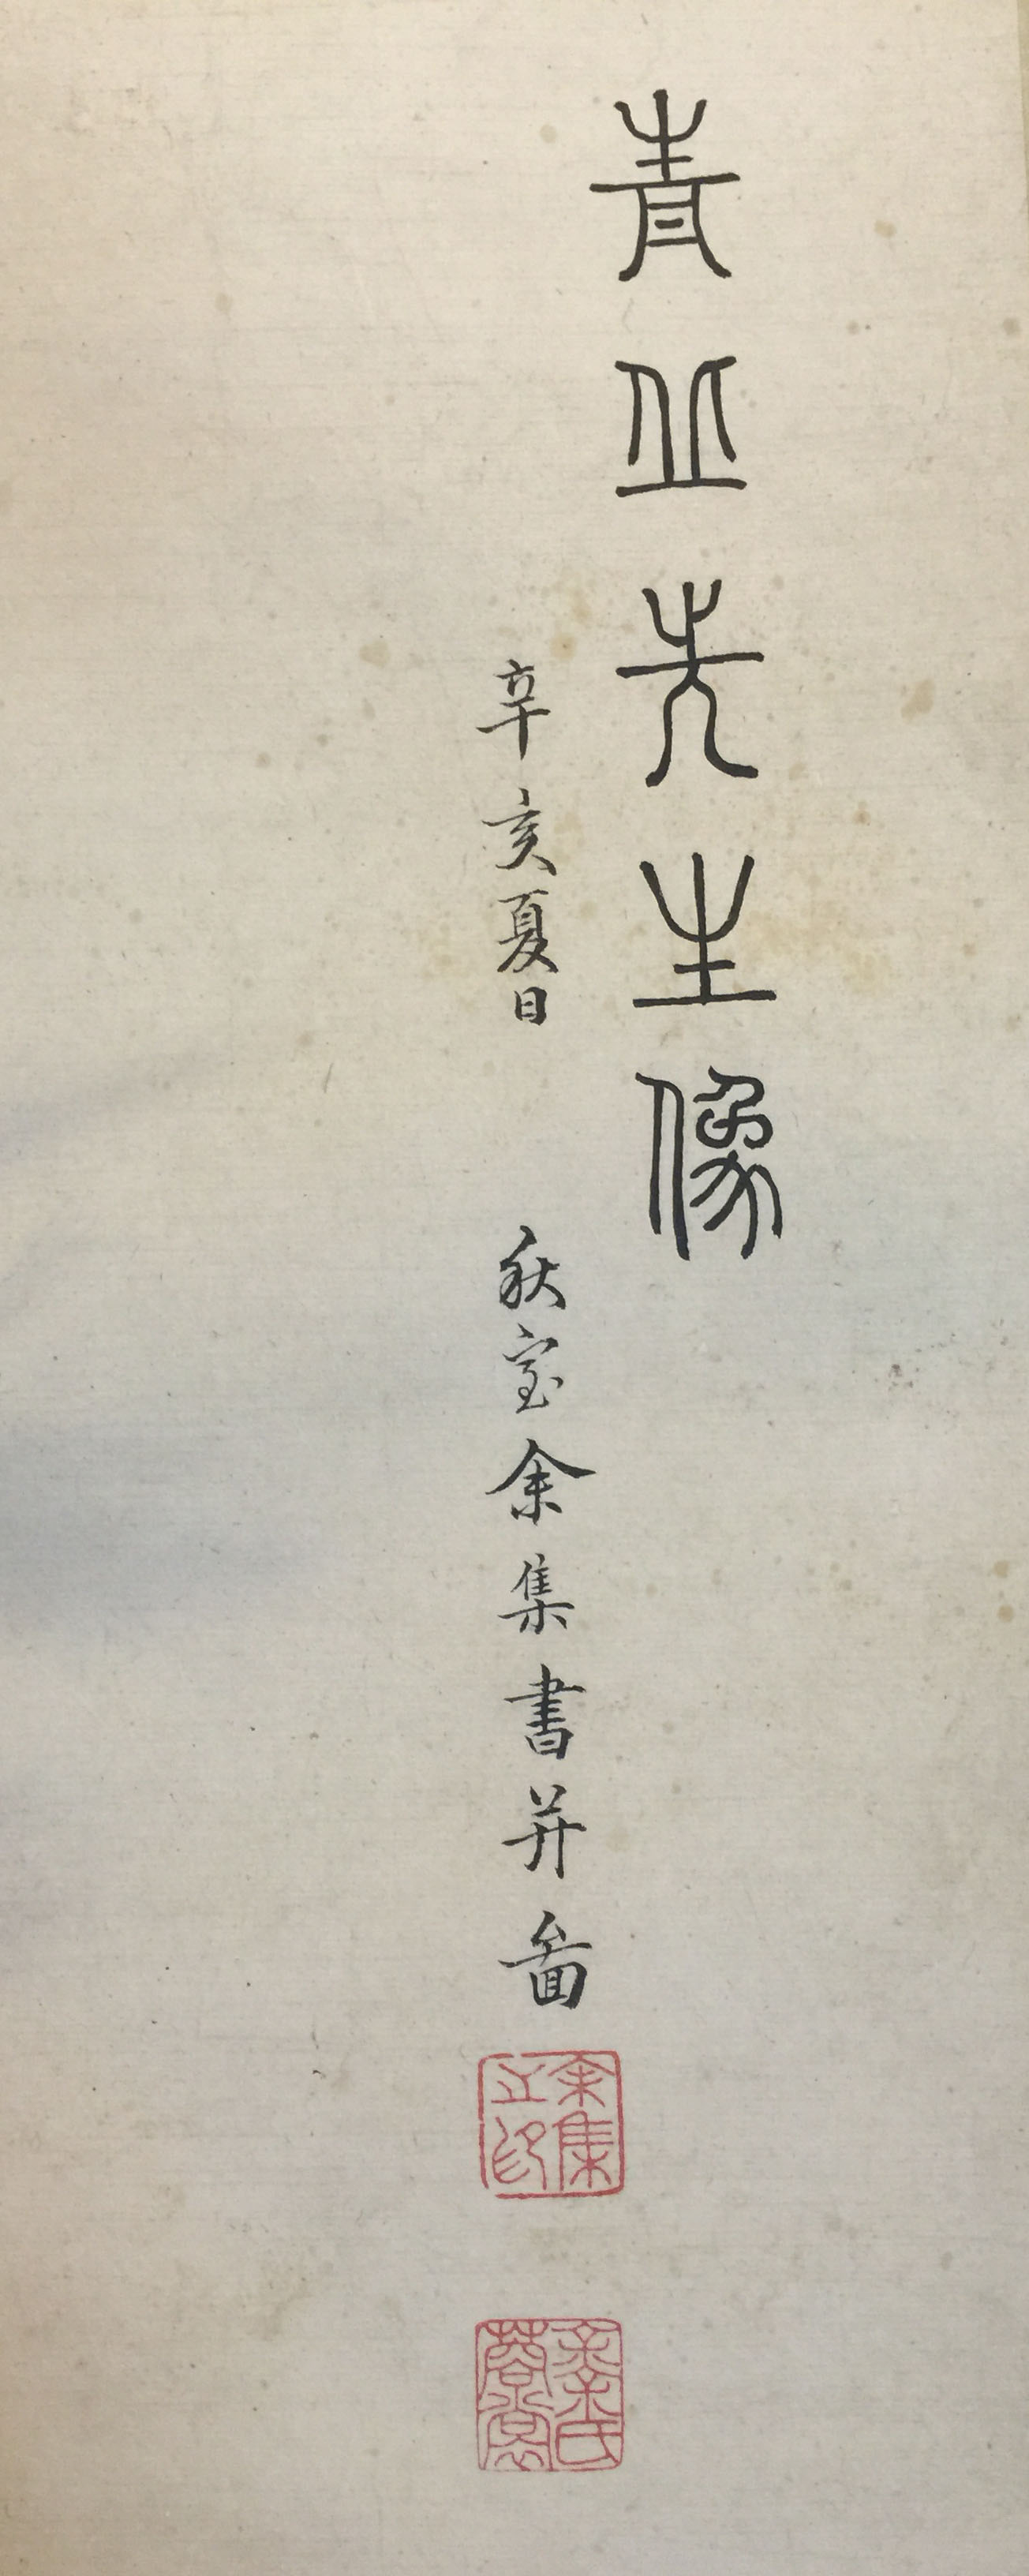 青丘先生像
辛亥夏日 秋室余集書并啚
余集之印